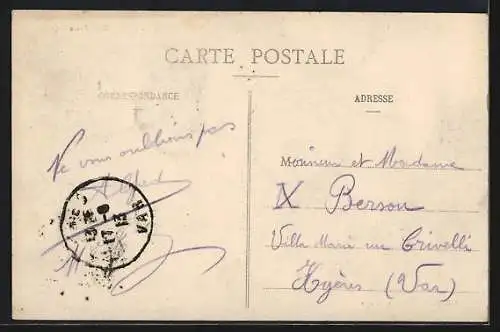 CARTE POSTALE
CORRESPONDANCE
ADRESSE
Ne vous oublions pas
Alfred
VAR
Monsieur et Madame
X Berson
Villa Marie rue Crivelli
Hyères (Var)